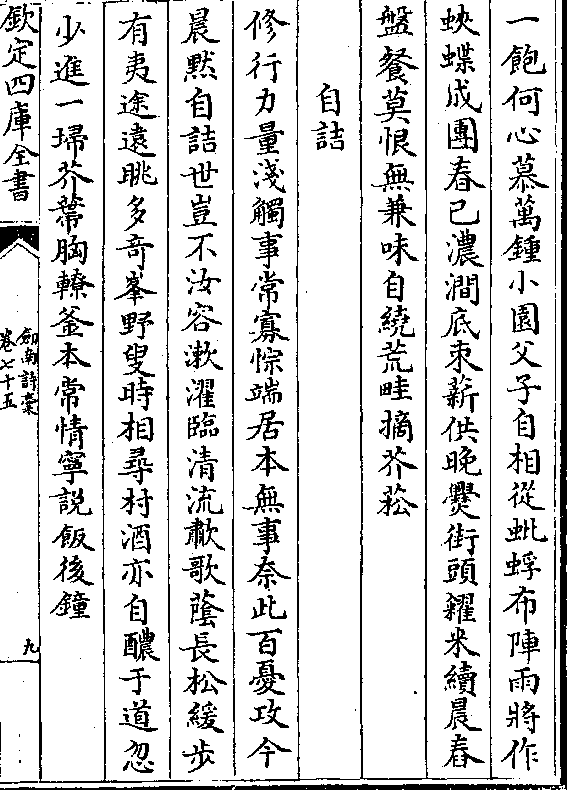 一飽何心慕萬鍾小園父子自相從蚍蜉布陣雨將作
蛺蝶成團春已濃澗底束薪供晚爨街頭糴米續晨舂
盤餐莫恨無兼味自繞荒畦摘芥菘
自詰
修行力量淺觸事常寡悰端居本無事奈此百憂攻今
晨黙自詰世豈不汝容漱濯臨清流歗歌䕃長松緩步
有夷途遠眺多竒峯野叟時相尋村酒亦自醲于道忽
少進一埽芥蔕胸轑釜本常情寧説飯後鐘
欽定四庫全書
劒南詩稾
卷七十五
九